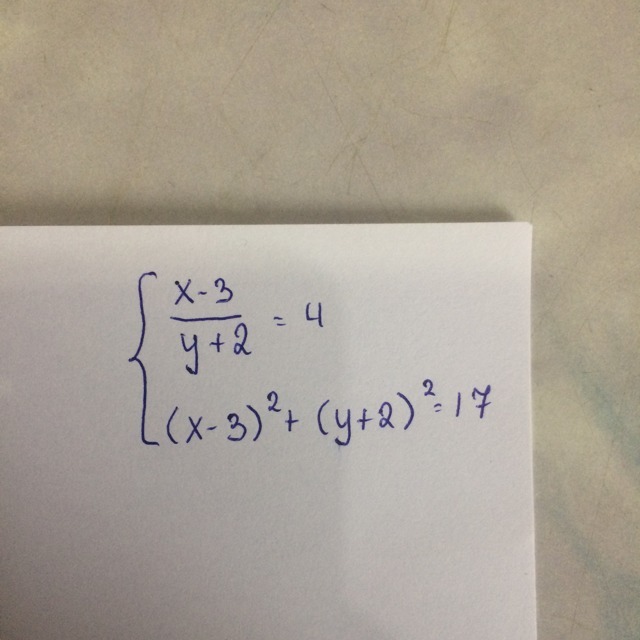 x-3
y+2 = 4
(x-3)²+ (y+2)²=17